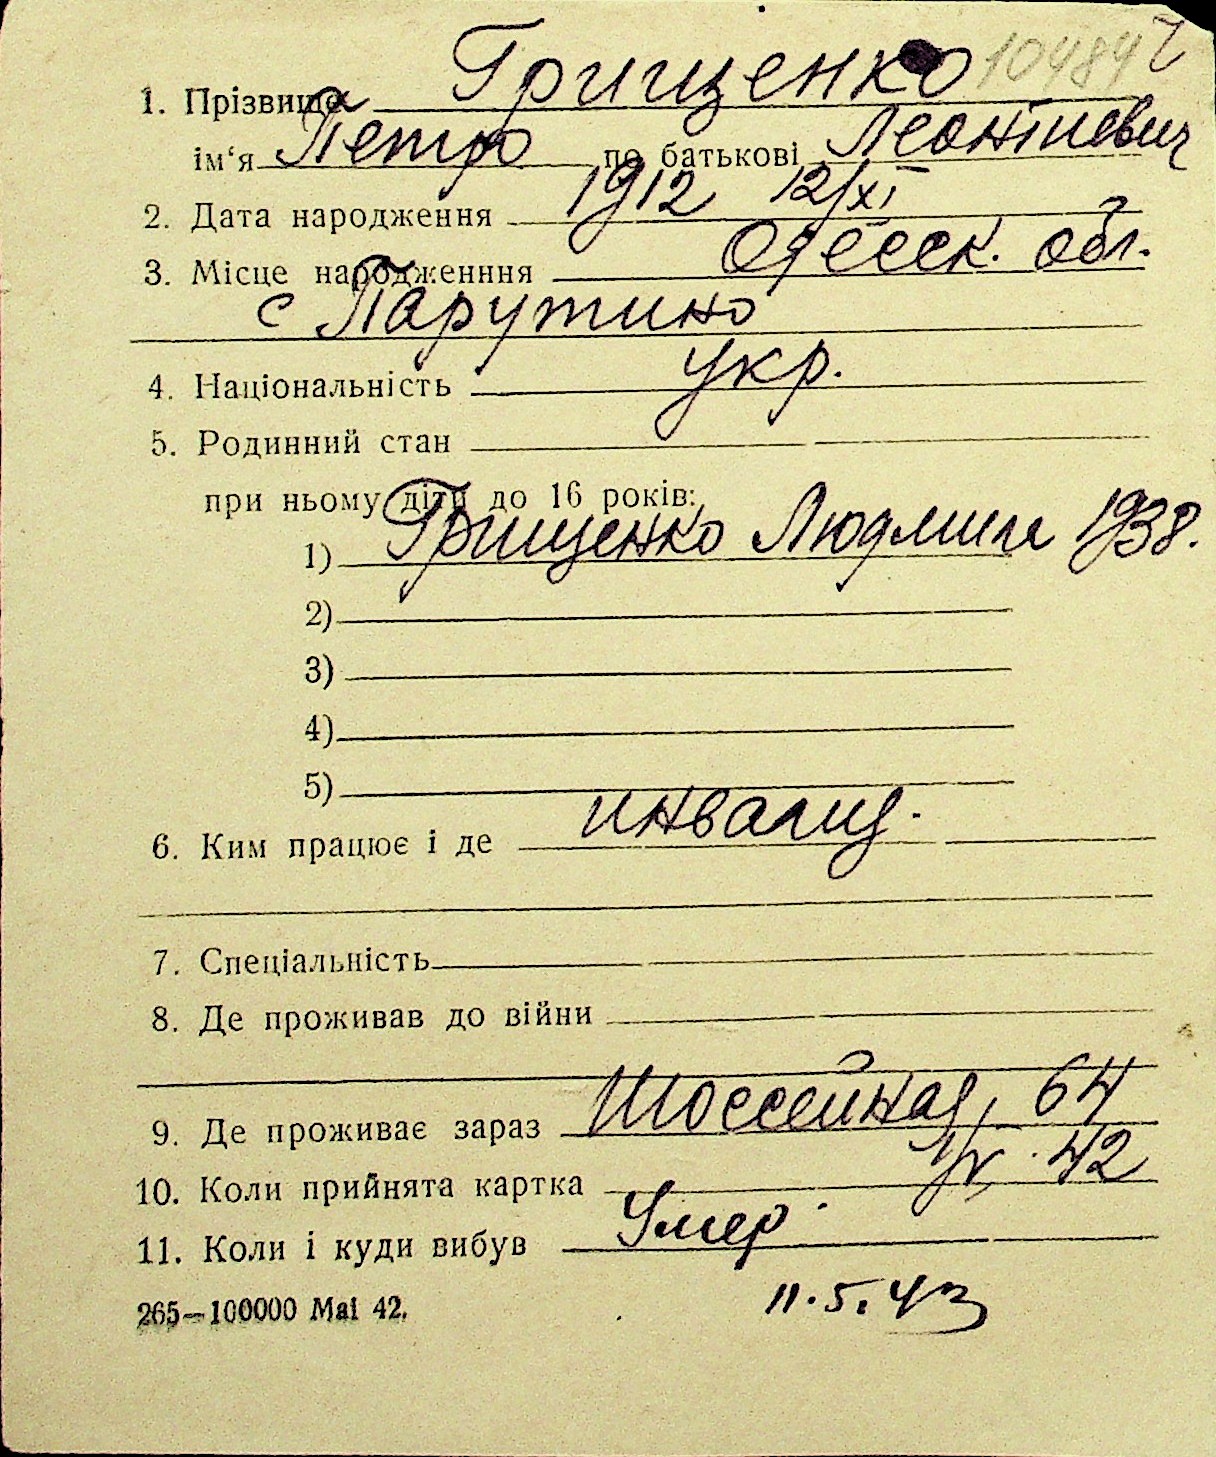 10484
1. Прізвище Грищенко
ім‘я Петро по батькові Леонтиевич
2. Дата народження 1912 12/XI
3. Місце народженння Одесск. обл.
с Парутино
4. Національність укр.
5. Родинний стан
при ньому діти до 16 років:
1) Грищенко Людмила 1938.
2)
3)
4)
5)
6. Ким працює і де инвалид.
7. Спеціальність
8. Де проживав до війни
9. Де проживає зараз Шоссейная, 64
10. Коли прийнята картка 42
11. Коли і куди вибув Умер.
265—100000 Mai 42. 11.5.43